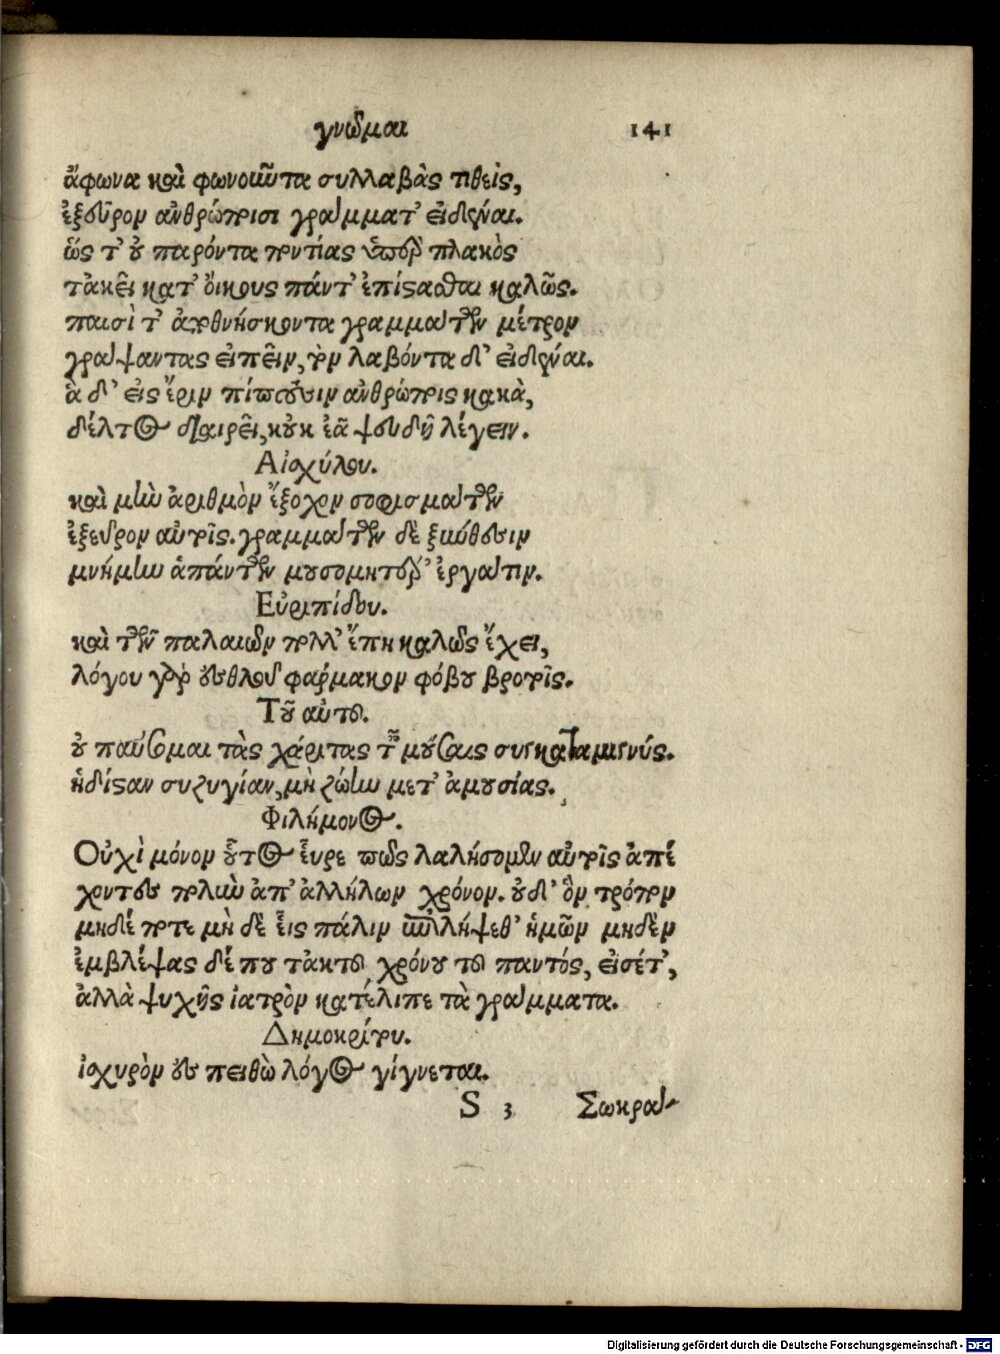 γνῶμαι 141
ἄφωνα καὶ φωνοῦντα συλλαβὰς τιθεὶς,
ἐξεῦρον ἀνθρώποισι γράμματ' εἰδέναι.
ὥς τ' οὐ παρόντα ποντίας ὑπὲρ πλακὸς
τἀκεῖ κατ' οἴκους πάντ' ἐπίστασθαι καλῶς.
παισὶ τ' ἀποθνήσκοντα γραμμάτων μέτρον
γράψαντας εἰπεῖν, τὸν λαβόντα δ' εἰδέναι.
ἃ δ' εἰς ἔριν πίπτουσιν ἀνθρώποις κακὰ,
δέλτος διαιρεῖ, κοὐκ ἐᾷ ψευδῆ λέγειν.
Αἰσχύλου.
καὶ μὴν ἀριθμὸν ἔξοχον σοφισμάτων
ἐξεῦρον αὐτοῖς. γραμμάτων δὲ ξυνθέσειν
μνήμην ἁπάντων μουσομητορ' ἐργάτιν.
Εὐριπίδου.
καὶ τῶν παλαιῶν πολλ' ἔπη καλῶς ἔχει,
λόγου γὰρ ἐσθλοῦ φάρμακον φόβου βροτοῖς.
Τοῦ αὐτοῦ.
οὐ παύσομαι τὰς χάριτας τῶν μούσαις συγκαταμιγνύς.
ἡδίσταν συζυγίαν, μὴ ζώην μετ' ἀμουσίας.
Φιλήμονος.
Οὐχὶ μόνον οὗτος εὗρε πῶς λαλήσομεν αὐτοῖς ἀπέ
χοντες πολὺν ἀπ' ἀλλήλων χρόνον. οὐδ' ὃν τρόπον
μηδέ ποτε μὴ δὲ εἷς πάλιν συλλήψεθ' ἡμῶν μηδὲν
ἐμβλέψας δέ που τἀκτοῦ χρόνου τοῦ παντός, εἰσέτ',
ἀλλὰ ψυχῆς ἰατρὸν κατέλιπε τὰ γράμματα.
Δημοκρίτου.
ἰσχυρὸν ἐς πειθὼ λόγος γίγνεται.
S 3 Σωκρά-
Digitalisierung gefördert durch die Deutsche Forschungsgemeinschaft - DFG